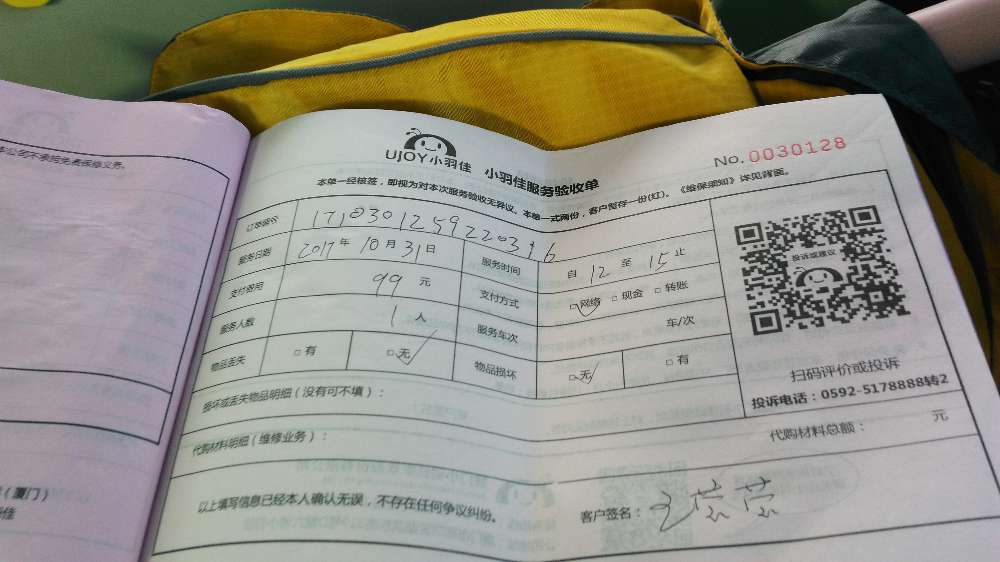 本公司不承担免费保修义务。
UJOY小羽佳 小羽佳服务验收单 No. 0030128
本单一经核签，即视为对本次服务验收无异议。本单一式两份，客户暂存一份(红)。《维保须知》详见背面。
订单编号 171030125922034.6
服务日期 2017年 10月 31日 服务时间 自 12 至 15 止
支付费用 99 元 支付方式 □网络 □现金 □转账
服务人数 1 人 服务车次 车/次
物品丢失 □有 □无 物品损坏 □无 □有
投诉或建议
扫码评价或投诉
投诉电话：0592-5178888转2
损坏或丢失物品明细（没有可不填）：
代购材料明细（维修业务）： 代购材料总额： 元
以上填写信息已经本人确认无误，不存在任何争议纠纷。 客户签名：王芸芸
（厦门）
佳